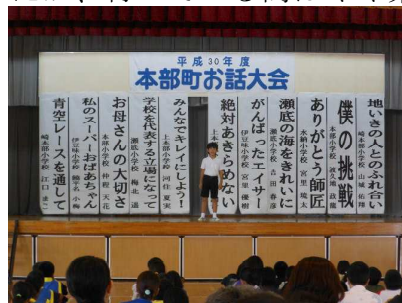 平成30年度
本部町お話大会
地いきの人とのふれ合い
崎本部小学校 山城 佑翔
僕の挑戦
本部小学校
ありがとう師匠
水納小学校 宮里 琉太
瀬底の海をきれいに
瀬底小学校 吉田 春彦
がんばったエイサー
伊豆味小学校 宮里 優樹
絶対あきらめない
上本
みんなでキレイにしよう!
上本部小学校 河住 夏実
学校を代表する立場になって
瀬底小学校 梅北 遥
お母さんの大切さ
本部小学校 仲程 天花
私のスーパーおばあちゃん
伊豆味小学校
青空レースを通して
崎本部小学校 江口 まこ